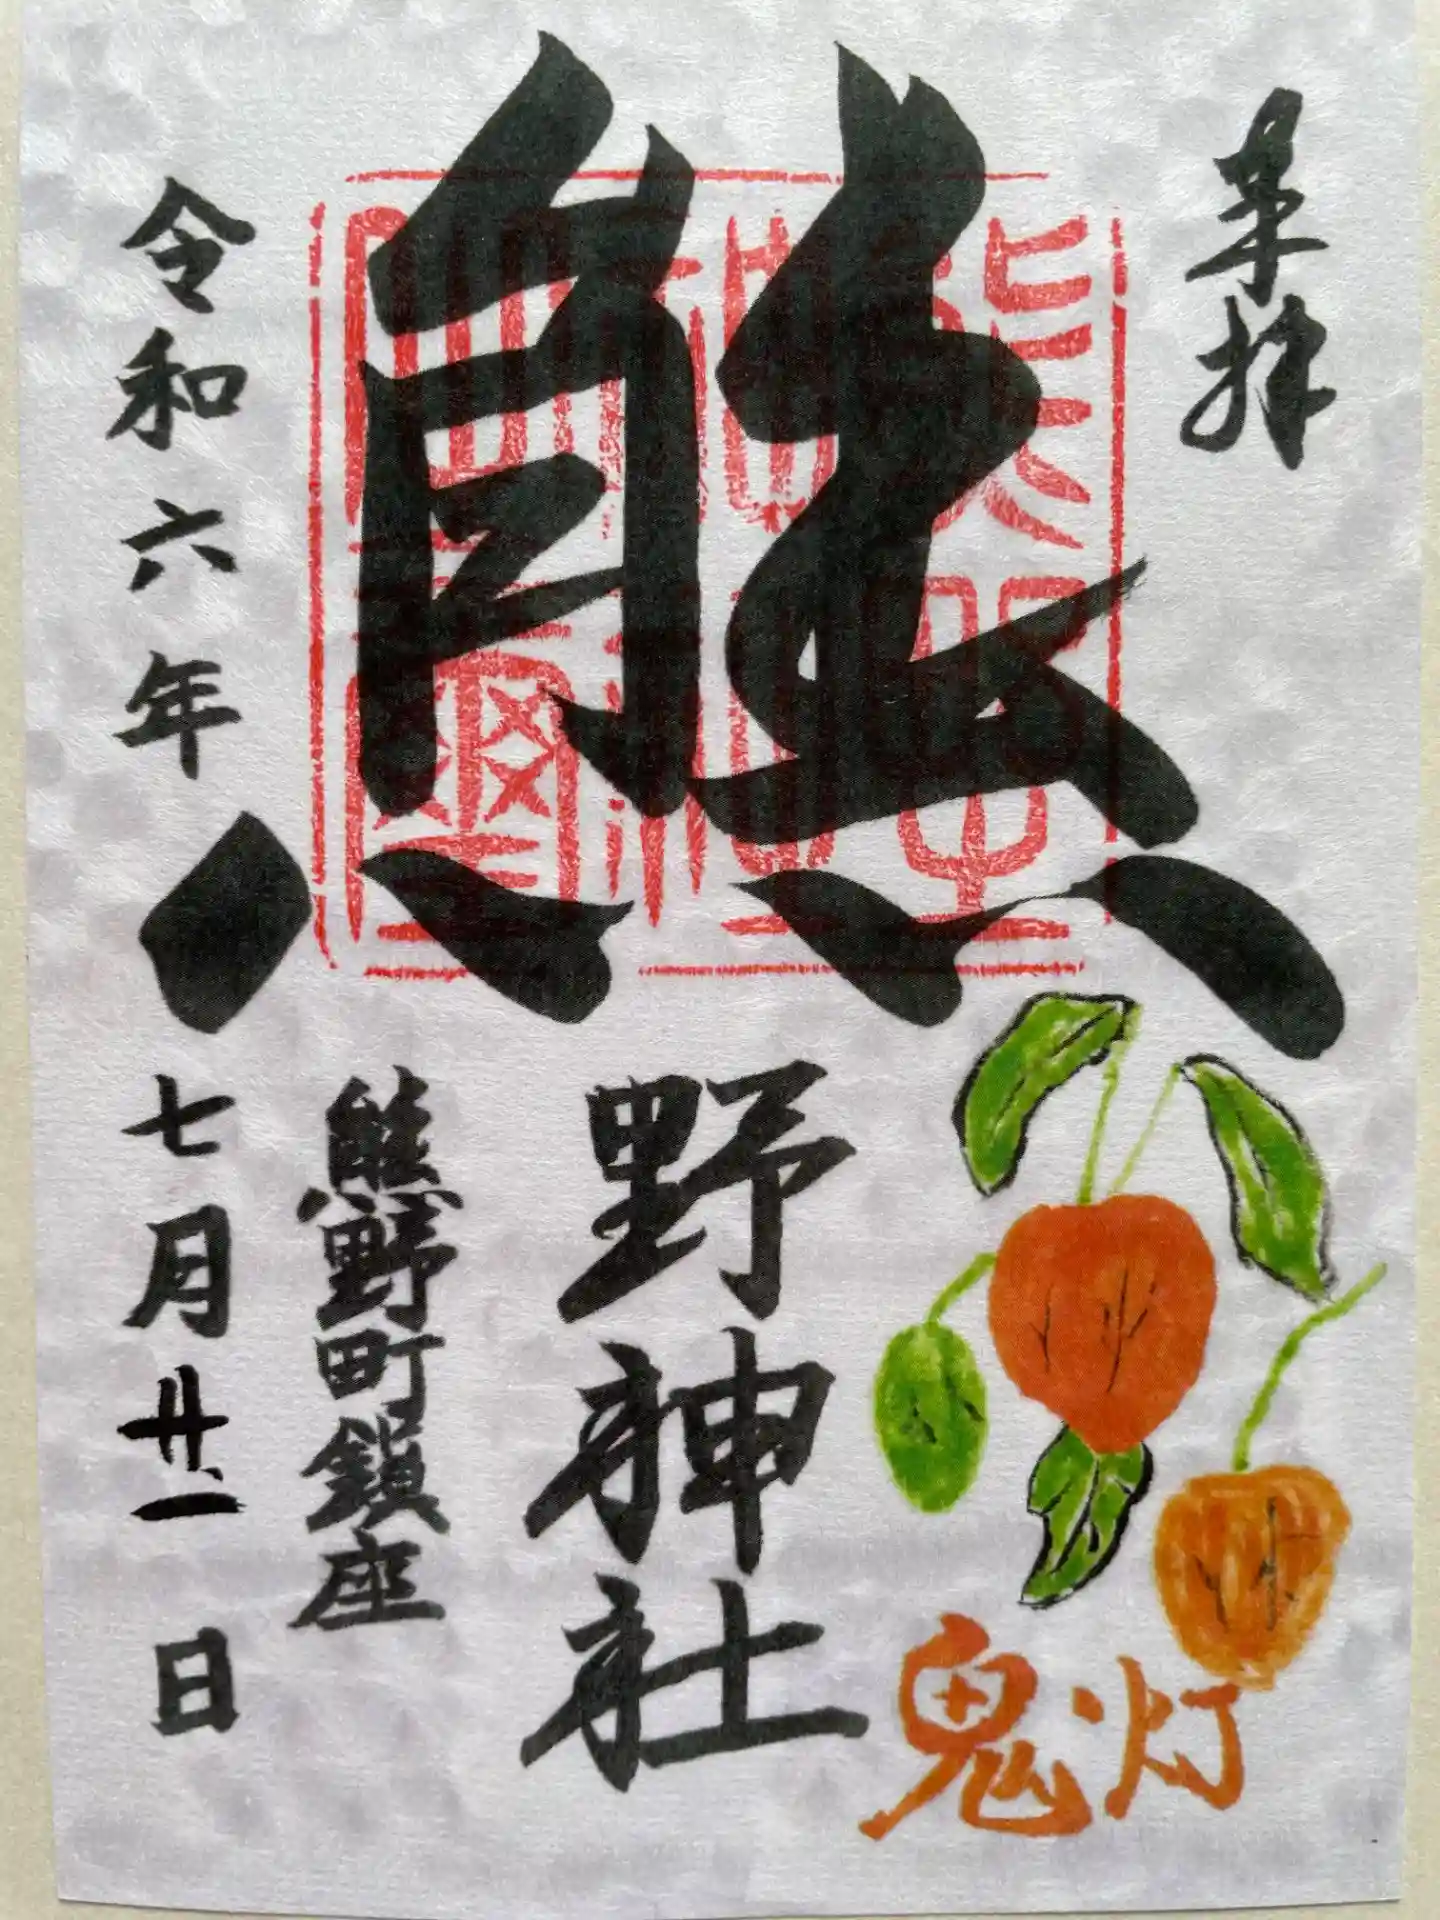 奉拝
熊野神社
鬼灯
熊野町鎮座
令和六年七月廿一日